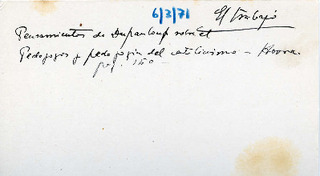 6/3/71
El trabajo
Pensamientos de Dupanloup sobre el
Pedagogos y pedagogía del catolicismo - Hovre.
pag. 140 -